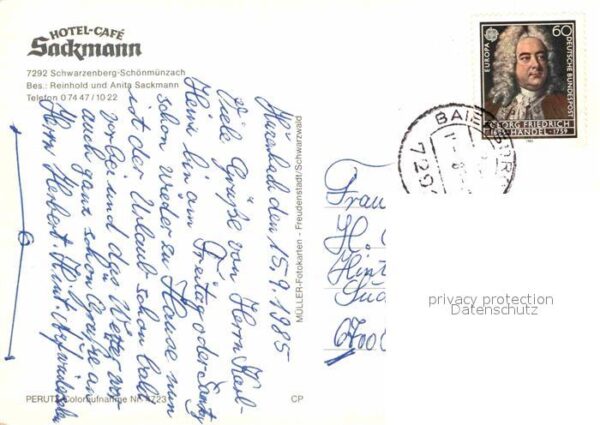 HOTEL-CAFÉ
Sackmann
7292 Schwarzenberg-Schönmünzach
Bes.: Reinhold und Anita Sackmann
Telefon 0 74 47 / 10 22
den 15.9.1985
Viele Grüße von Herrn Karl-
Heinz bin am Freitag oder
schon wieder zu Hause nun
ist der Urlaub schon bald
vorbei und das Wetter war
auch ganz schön Grüße an
Herrn Herbert
MÜLLER-Fotokarten - Freudenstadt/Schwarzwald
PERUTZ Coloraufnahme Nr. 8723
CP
EUROPA
60
DEUTSCHE BUNDESPOST
GEORG FRIEDRICH
HÄNDEL · 1759
BAIE
729
Frau
H.